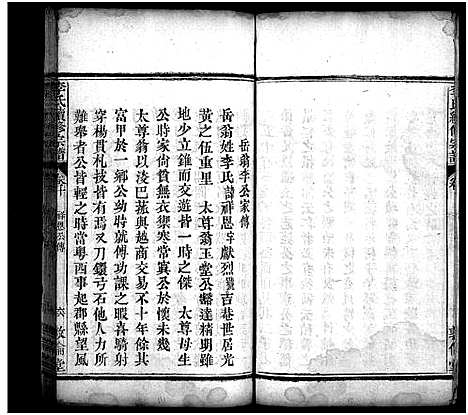 岳翁李公家傳
岳翁姓李氏諱祥恩字獻烈號吉巷世居光
黄之伍重里　太尊翁玉堂公鬱達精明雖
地少立錐而交遊皆一時之傑　太尊母生
公時家尚貧無衣禦寒常寘公於懷未幾
太尊翁以淩巴菰與越商交易不十年餘其
富甲於一鄉公幼時就傅功課之暇喜騎射
穿楊貫札技皆有焉又刀鐶弓石他人力所
難舉者公皆輕之時當粤西事起郡縣望風
李氏續修宗譜
卷十
祥恩公傳
六
敦倫堂